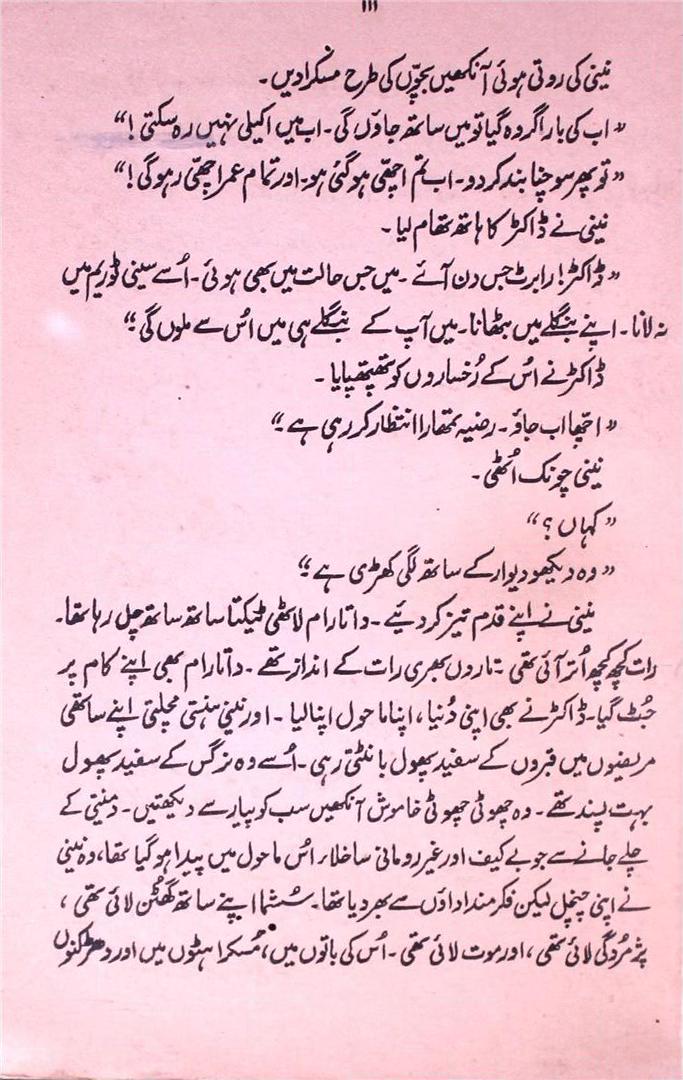 ۱۱۱
نینی کی روتی ہوئی آنکھیں بچّوں کی طرح مسکرا دیں۔
”اب کی بار اگر وہ گیا تو میں ساتھ جاؤں گی۔ اب میں اکیلی نہیں رہ سکتی!“
”تو پھر سوچنا بند کر دو۔ اب تم اچھّی ہو گئی ہو۔ اور تمام عمر اچھّی رہو گی!“
نینی نے ڈاکٹر کا ہاتھ تھام لیا۔
”ڈاکٹر! رابرٹ جس دن آئے۔ میں جس حالت میں بھی ہوئی۔ اُسے سینی ٹوریم میں
نہ لانا۔ اپنے بنگلے میں بٹھانا۔ میں آپ کے بنگلے ہی میں اُس سے ملوں گی“
ڈاکٹر نے اُس کے رُخساروں کو تھپتھپایا۔
”اچھا اب جاؤ۔ رضیہ تمھارا انتظار کر رہی ہے۔“
نینی چونک اُٹھی۔
”کہاں؟“
”وہ دیکھو دیوار کے ساتھ لگی کھڑی ہے“
نینی نے اپنے قدم تیز کر دیئے۔ داتارام لاٹھی ٹیکتا ساتھ ساتھ چل رہا تھا۔
رات کچھ کچھ اُتر آئی تھی۔ تاروں بھری رات کے انداز تھے۔ داتارام بھی اپنے کام پر
جُٹ گیا۔ ڈاکٹر نے بھی اپنی دُنیا، اپنا ماحول اپنا لیا۔ اور نینی ہنستی مچلتی اپنے ساتھی
مریضوں میں قبروں کے سفید پھول بانٹتی رہی۔ اُسے وہ نرگس کے سفید پھول
بہت پسند تھے۔ وہ چھوٹی چھوٹی خاموش آنکھیں سب کو پیار سے دیکھتیں۔ دمنیتی کے
چلے جانے سے جو بے کیف اور غیر رومانی سا خلاء اس ماحول میں پیدا ہو گیا تھا، وہ نینی
نے اپنی چنچل لیکن فکر مند اداؤں سے بھر دیا تھا۔ سُشما اپنے ساتھ گھٹن لائی تھی،
پژمُردگی لائی تھی، اور موت لائی تھی۔ اُس کی باتوں میں، مُسکراہٹوں میں اور دھڑکنوں